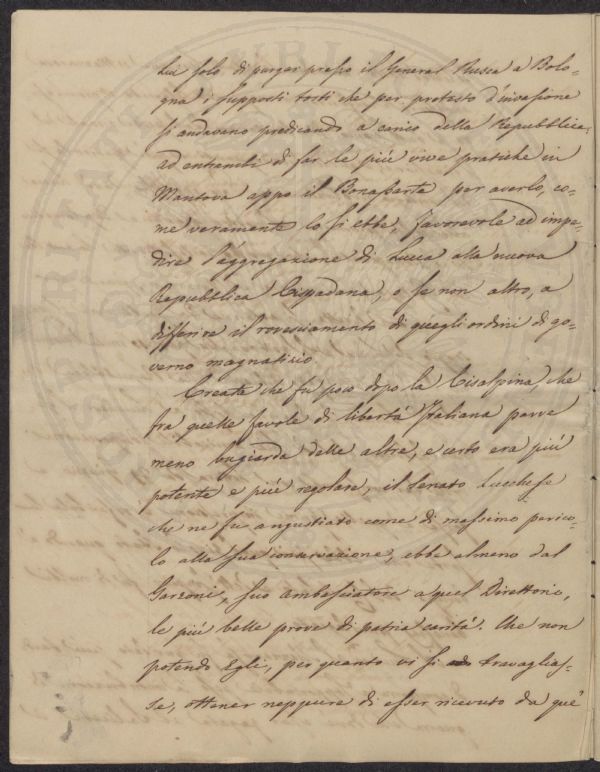 lui solo di purgar presso il General Rusca a Bolo-
gna i supposti torti che per protesto d'invasione
si andavano predicando a carico della Repubblica,
ad entrambi di far le più vive pratiche in
Mantova appo il Bonaparte per averlo, co-
me veramente lo si ebbe, favorevole ad impe-
dire l'aggregazione di Lucca alla nuova
Repubblica Cispadana, o se non altro, a
differire il rovesciamento di quegli ordini di go-
verno magnatizio
Creata che fu poco dopo la Cisalpina che
fra quelle favole di libertà Italiana parve
meno bugiarda delle altre, e certo era più
potente e più regolare, il Senato Lucchese
che ne fu angustiato come di massimo perico-
lo alla sua conservazione, ebbe almeno dal
Garzoni, suo ambasciatore a quel Direttorio,
le più belle prove di patria carità. Che non
potendo Egli, per quanto vi si travaglias-
se, ottener neppure di esser ricevuto da que'